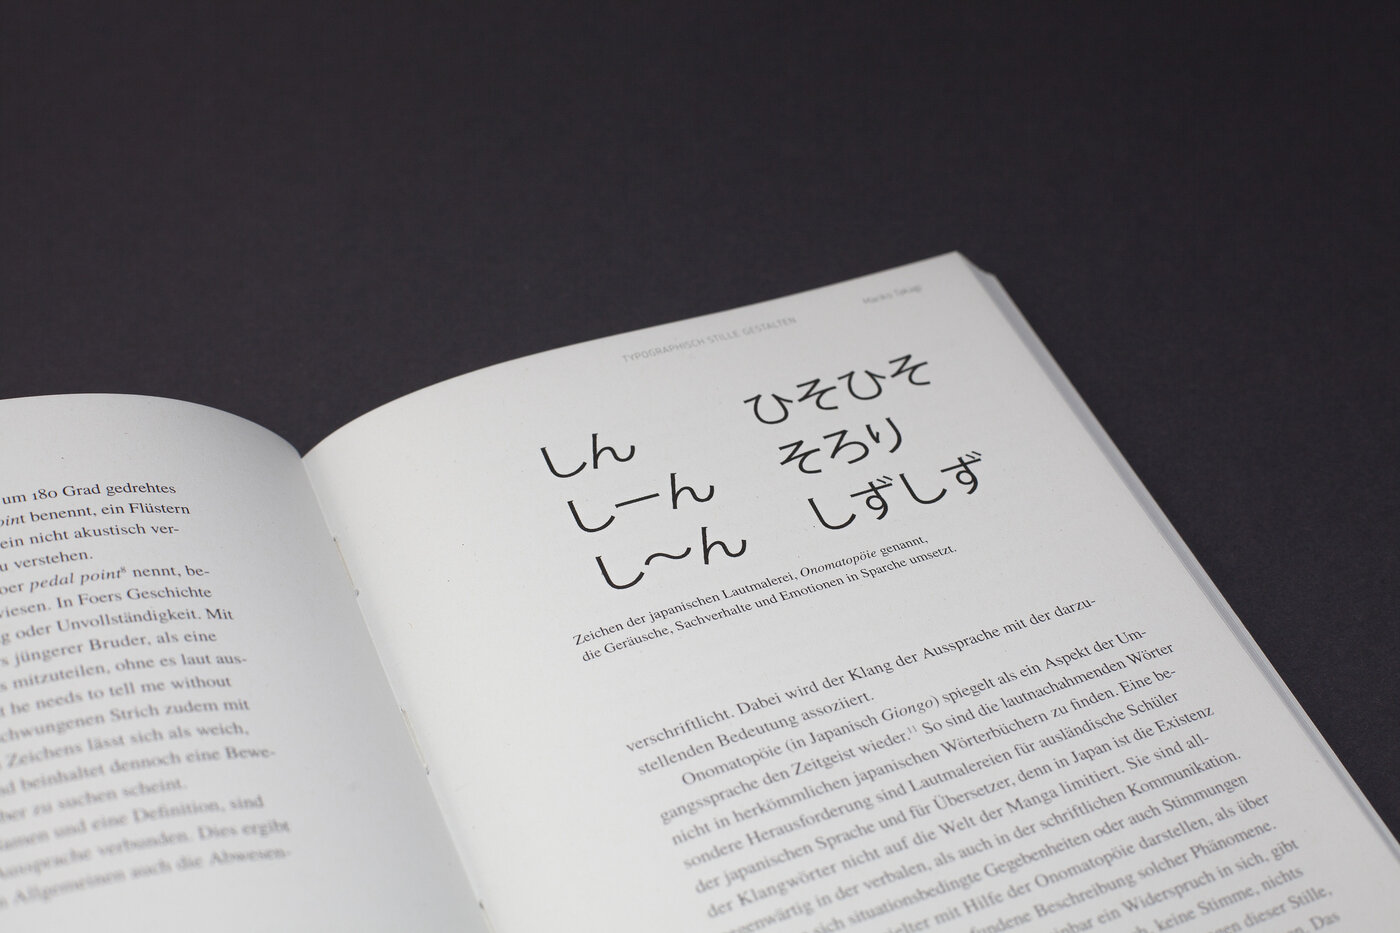 um 180 Grad gedrehtes
point benennt, ein Flüstern
ein nicht akustisch ver-
verstehen.
pedal point⁸ nennt, be-
wiesen. In Foers Geschichte
oder Unvollständigkeit. Mit
jüngerer Bruder, als eine
mitzuteilen, ohne es laut aus-
he needs to tell me without
schwungenen Strich zudem mit
Zeichens lässt sich als weich,
beinhaltet dennoch eine Bewe-
zu suchen scheint.
und eine Definition, sind
Aussprache verbunden. Dies ergibt
Allgemeinen auch die Abwesen-
TYPOGRAPHISCH STILLE GESTALTEN
Mariko Takagi
しん
しーん
し〜ん
ひそひそ
そろり
しずしず
Zeichen der japanischen Lautmalerei, Onomatopöie genannt,
die Geräusche, Sachverhalte und Emotionen in Sparche umsetzt.
verschriftlicht. Dabei wird der Klang der Aussprache mit der darzu-
stellenden Bedeutung assoziiert.
Onomatopöie (in Japanisch Giongo) spiegelt als ein Aspekt der Um-
gangssprache den Zeitgeist wieder.¹¹ So sind die lautnachahmenden Wörter
nicht in herkömmlichen japanischen Wörterbüchern zu finden. Eine be-
sondere Herausforderung sind Lautmalereien für ausländische Schüler
der japanischen Sprache und für Übersetzer, denn in Japan ist die Existenz
der Klangwörter nicht auf die Welt der Manga limitiert. Sie sind all-
gegenwärtig in der verbalen, als auch in der schriftlichen Kommunikation.
sich situationsbedingte Gegebenheiten oder auch Stimmungen
mit Hilfe der Onomatopöie darstellen, als über
Beschreibung solcher Phänomene.
ein Widerspruch in sich, gibt
keine Stimme, nichts
dieser Stille,
Das